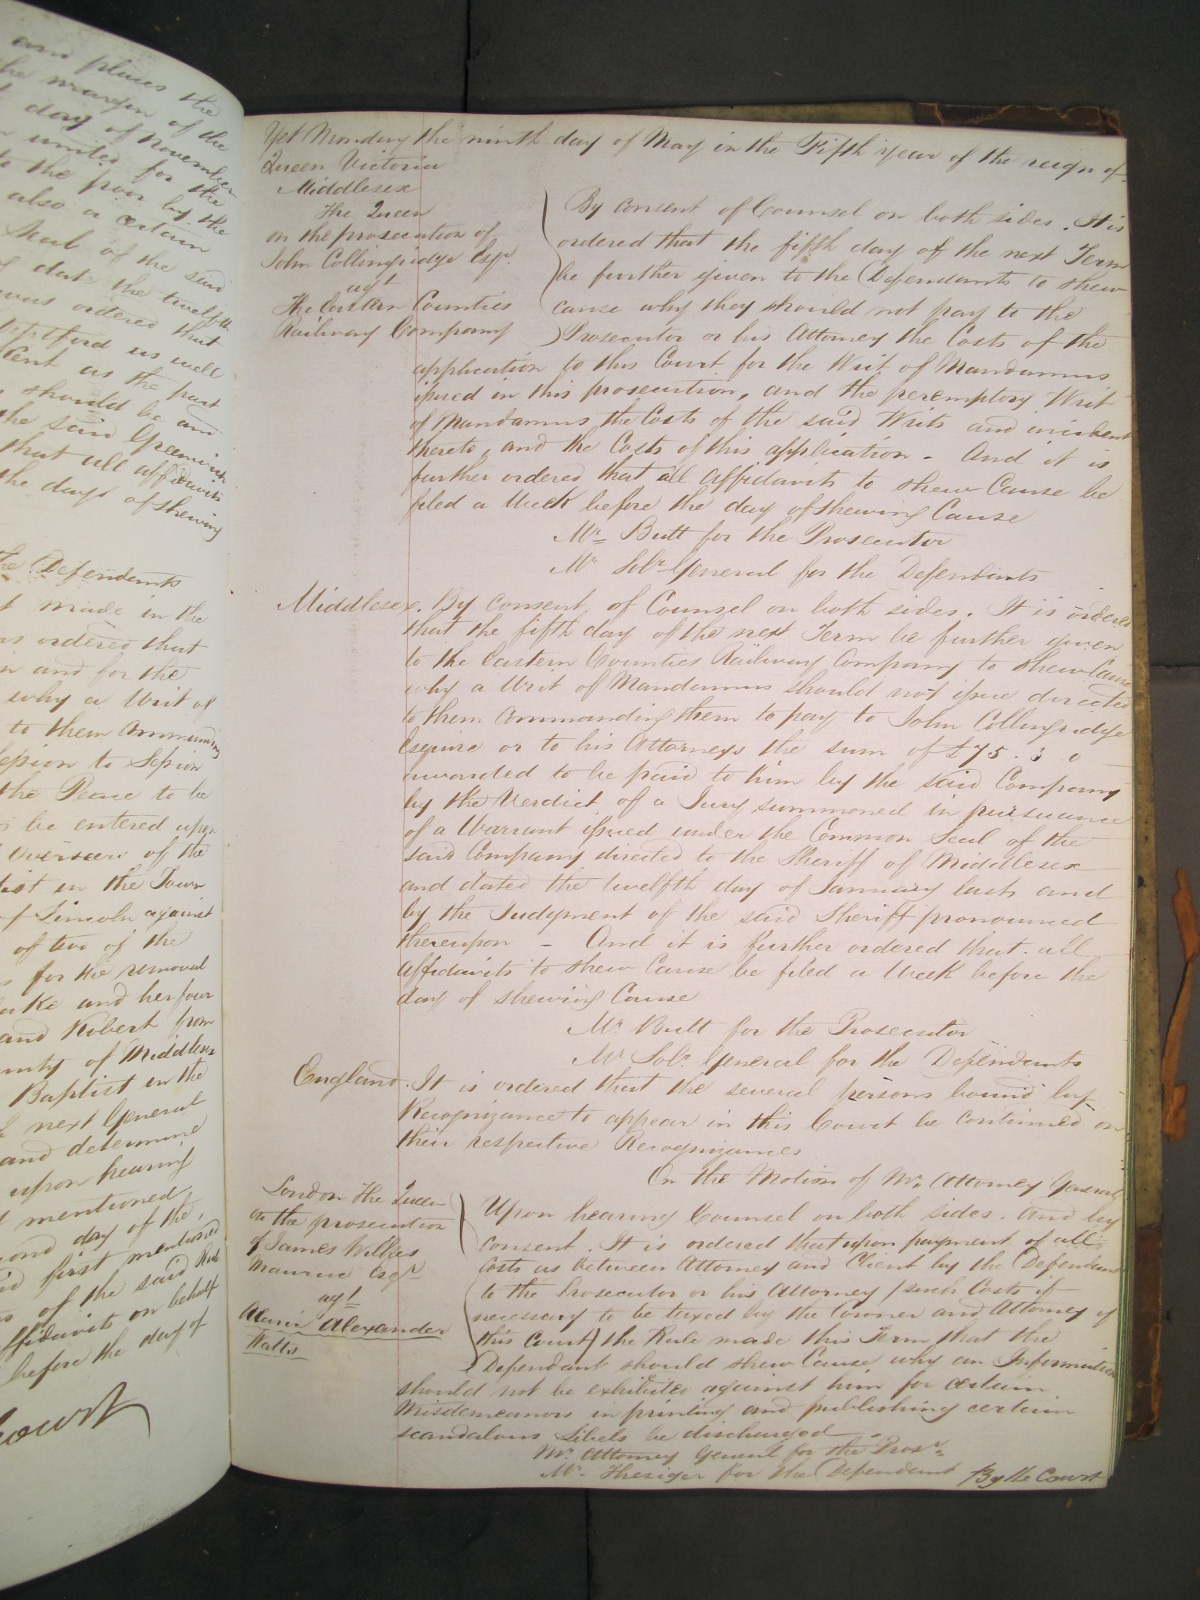 and places the
the margin of the
day of November
united for the
to the poor by the
also a certain
Seal of the said
date the twelfth
was ordered that
Deptford as well
Kent as the part
should be and
the said Greenwich
that all affidavits
the days of shewing
The Defendants
made in the
as ordered that
and for the
why a Writ of
to them Commanding
Session to Session
the Peace to be
be entered upon
Overseers of the
in the Town
of Lincoln against
of two of the
for the removal
and her four
and Robert from
County of Middlesex
Baptist in the
next General
and determine
upon hearing
mentioned
second day of the
said first mentioned
of the said Rule
affidavits on behalf
before the day of
Court
Yet Monday the ninth day of May in the Fifth year of the reign of
Queen Victoria
Middlesex
The Queen
on the prosecution of
John Collingridge Esqr.
agt
The Eastern Counties
Railway Company
By Consent of Counsel on both sides. It is
ordered that the fifth day of the next Term
be further given to the Defendants to shew
cause why they should not pay to the
Prosecutor or his Attorney the Costs of the
application to this Court for the Writ of Mandamus
issued in this prosecution, and the peremptory Writ
of Mandamus the Costs of the said Writs and incident
thereto, and the Costs of this application - And it is
further ordered that all Affidavits to shew Cause be
filed a Week before the day of shewing Cause
Mr. Butt for the Prosecutor
Mr Solr General for the Defendants
Middlesex. By consent of Counsel on both sides. It is ordered
that the fifth day of the next Term be further given
to the Eastern Counties Railway Company to shew Cause
why a Writ of Mandamus should not issue directed
to them Commanding them to pay to John Collingridge
Esquire or to his Attorneys the sum of £75. 3. 0
awarded to be paid to him by the said Company
by the Verdict of a Jury summoned in pursuance
of a Warrant issued under the Common Seal of the
said Company directed to the Sheriff of Middlesex
and dated the twelfth day of January last and
by the Judgment of the said Sheriff pronounced
thereupon - And it is further ordered that all
affidavits to shew Cause be filed a Week before the
day of shewing Cause
Mr. Butt for the Prosecutor
Mr Solr. General for the Defendants
England. It is ordered that the several persons bound by
Recognizance to appear in this Court be continued on
their respective Recognizances
On the Motion of Mr. Attorney General
London The Queen
on the prosecution
of James Wilkes
Maurice Esqr.
agt
Alaric Alexander
Watts
Upon hearing Counsel on both sides. and by
consent. It is ordered that upon payment of all
Costs as between Attorney and Client by the Defendant
to the Prosecutor or his Attorney (such Costs if
necessary to be taxed by the Coroner and Attorney of
this Court) the Rule made this Term that the
Defendant should shew Cause why an Information
should not be exhibited against him for certain
Misdemeanors in printing and publishing certain
scandalous Libels be discharged
Mr. Attorney General for the Prosr.
Mr. Thesiger for the Defendant By the Court